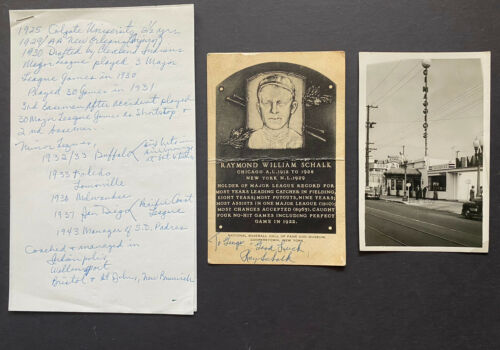 1925 Colgate University 2½ yrs.
1929/AA New Orleans
1930 Drafted by Cleveland Indians
Major League played 3 Major
League Games in 1930
Played 30 Games in 1931
3rd Baseman After accident played
30 Major League Games as Shortstop +
2nd baseman.
Minor Leagues,
1932/33 Buffalo
1933 Toledo
Louisville
1936 Milwaukee
1937 San Diego Pacific Coast League
1943 Manager of S.D. Padres
Coached + managed in
Indianapolis
Bristol + St Johns, New Brunswick
RAYMOND WILLIAM SCHALK
CHICAGO A.L. 1912 TO 1928
NEW YORK N.L. 1929
HOLDER OF MAJOR LEAGUE RECORD FOR
MOST YEARS LEADING CATCHER IN FIELDING,
EIGHT YEARS; MOST PUTOUTS, NINE YEARS;
MOST ASSISTS IN ONE MAJOR LEAGUE (1810);
MOST CHANCES ACCEPTED (8965). CAUGHT
FOUR NO-HIT GAMES INCLUDING PERFECT
GAME IN 1922.
NATIONAL BASEBALL HALL OF FAME AND MUSEUM
COOPERSTOWN, NEW YORK
To
Good Luck,
Ray Schalk
DIMAGGIO'S